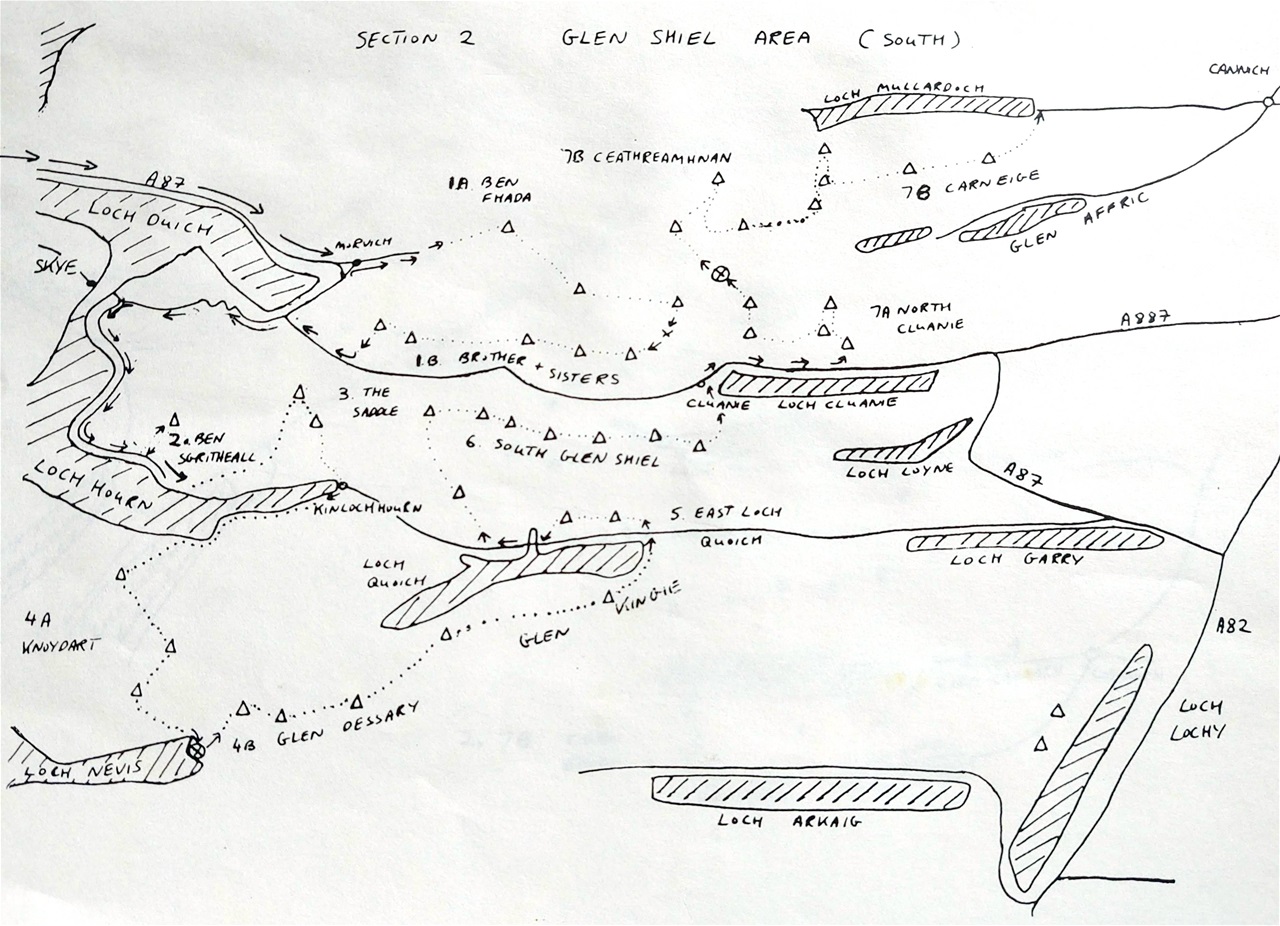 SECTION 2 GLEN SHIEL AREA (SOUTH)
CANNICH
LOCH MULLARDOCH
7B CEATHREAMHNAN
A87
1A. BEN
FHADA
7B CARNEIGE
LOCH DUICH
GLEN AFFRIC
MORVICH
SKYE
7A NORTH
CLUANIE
A887
1.B. BROTHER + SISTERS
3. THE
SADDLE
CLUANIE
LOCH CLUANIE
2a. BEN
SGRITHEALL
6. SOUTH GLEN SHIEL
LOCH LOYNE
A87
LOCH HOURN
KINLOCHHOURN
5. EAST LOCH
QUOICH
LOCH
QUOICH
LOCH GARRY
GLEN KINGIE
4A
KNOYDART
A82
4B GLEN DESSARY
LOCH
LOCHY
LOCH NEVIS
LOCH ARKAIG